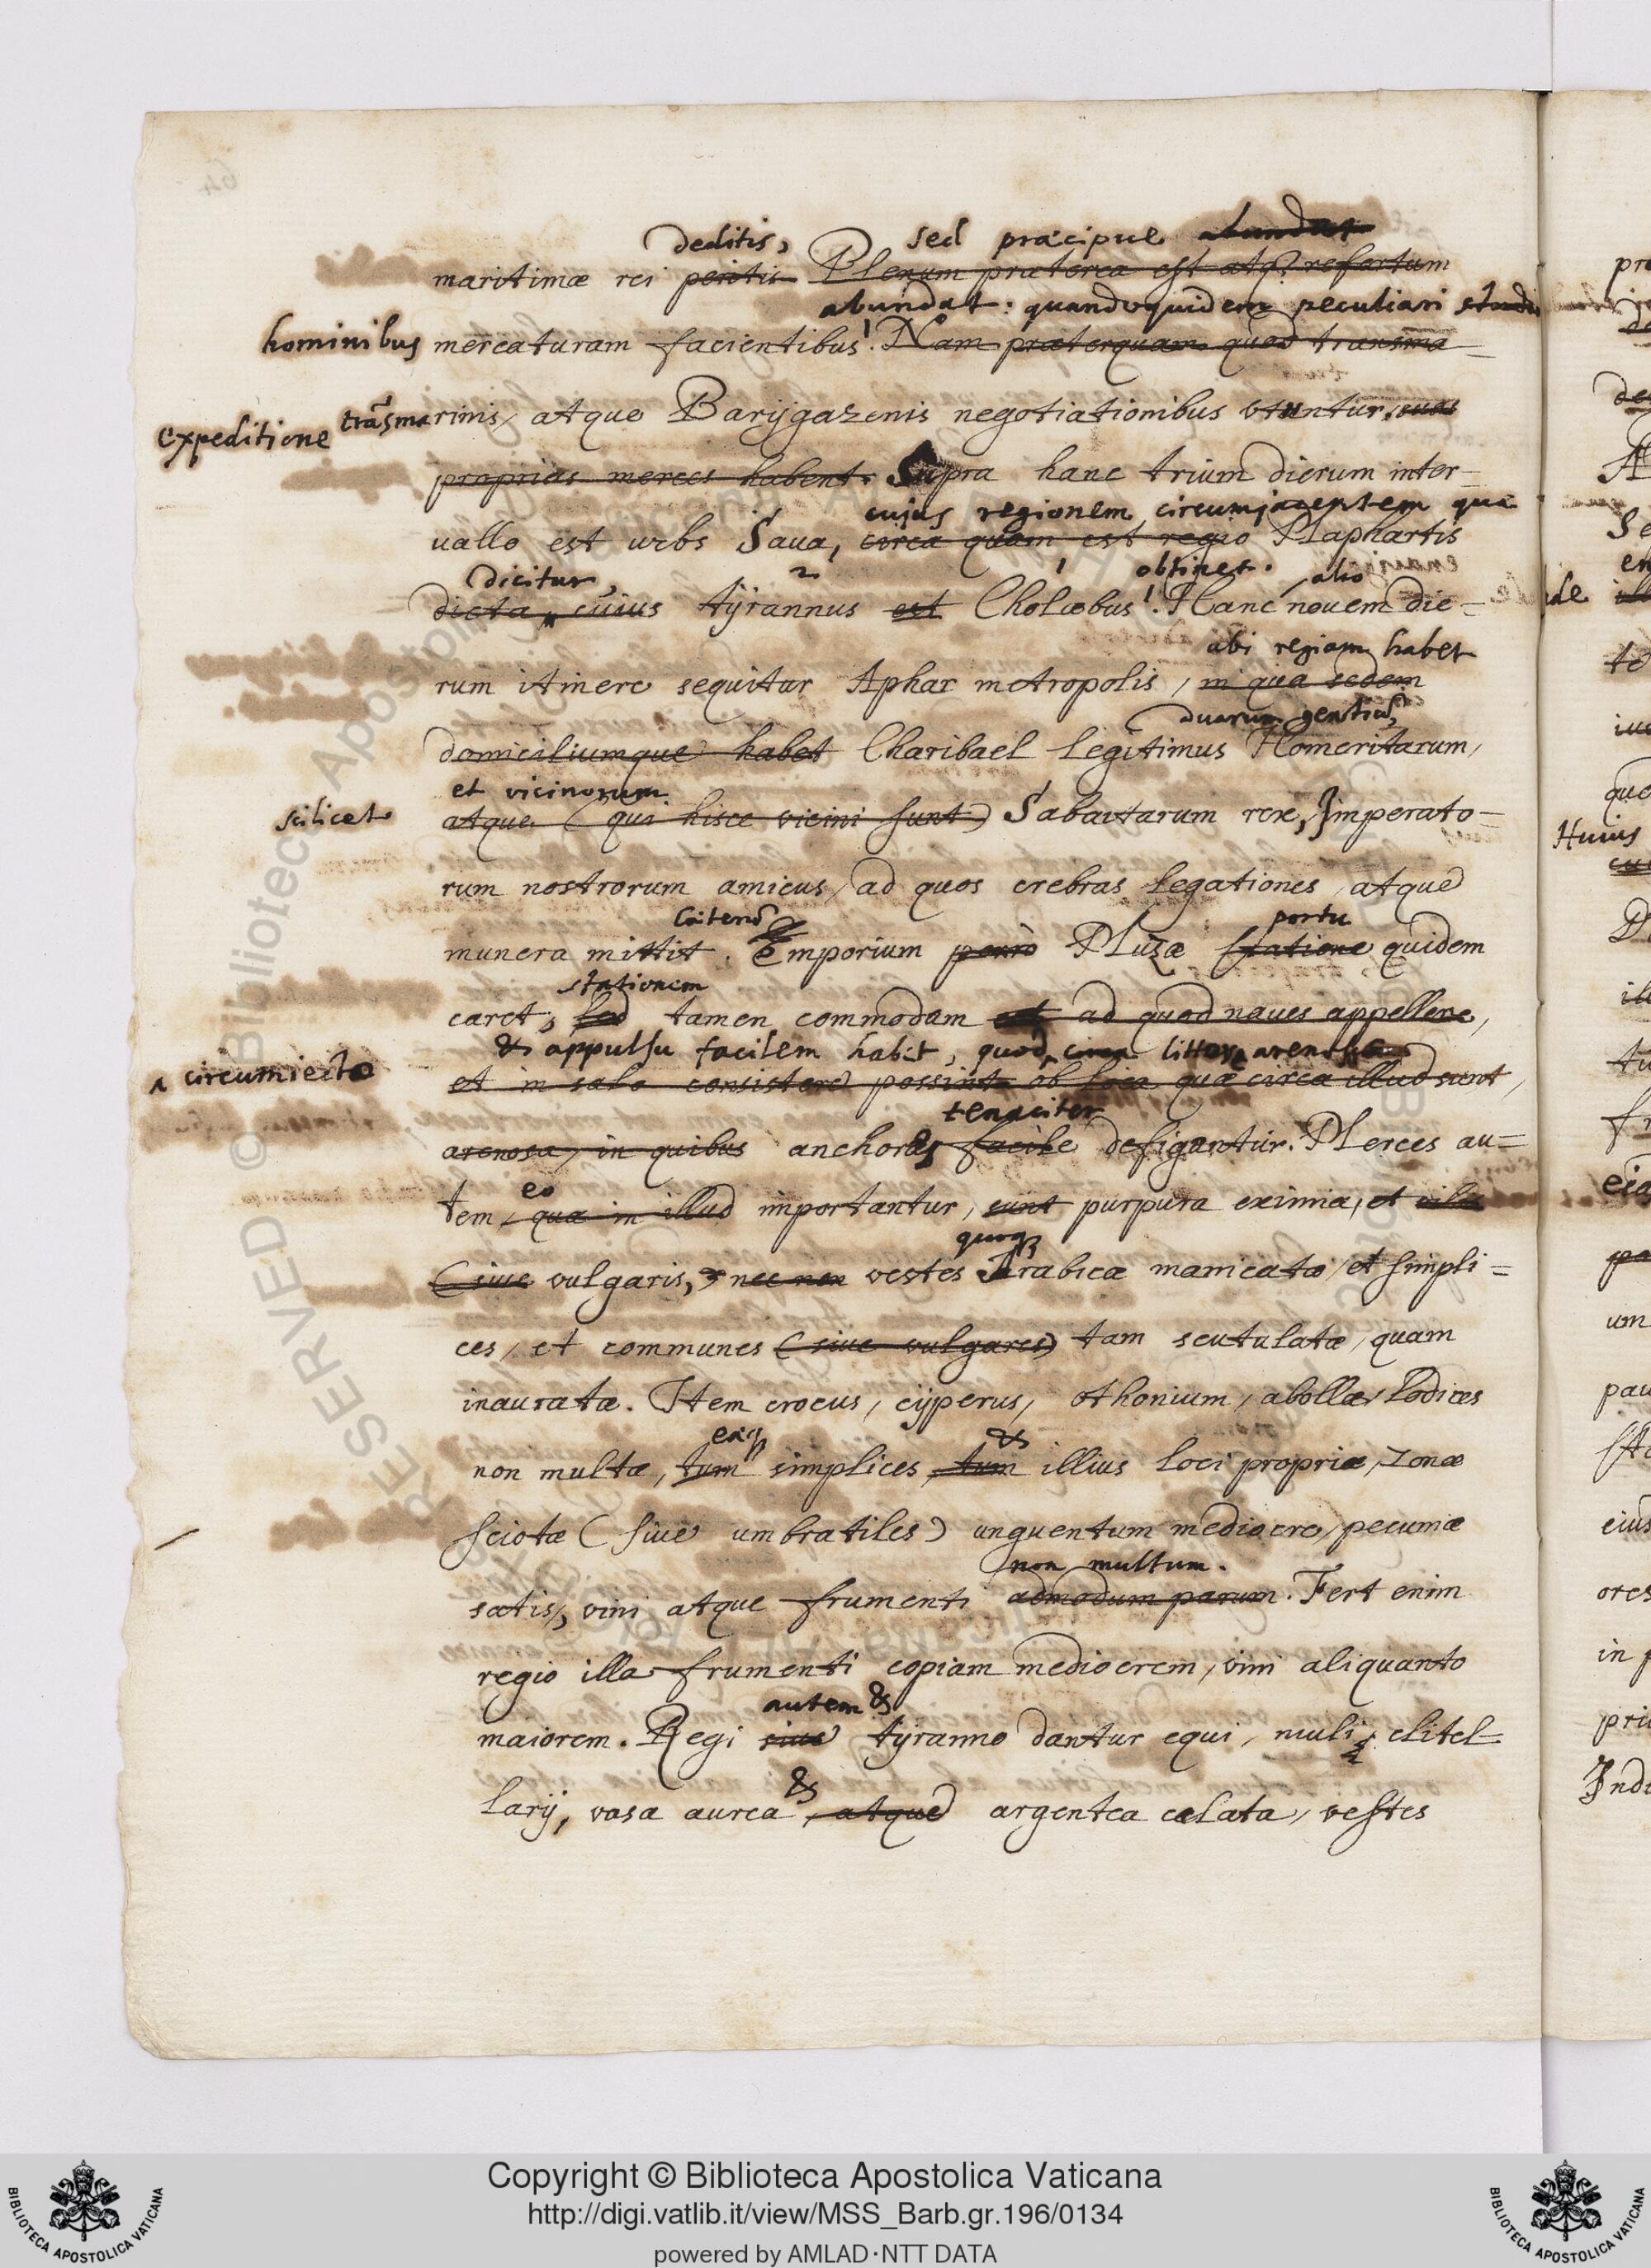 deditis, sed præcipue abundat
maritimæ rei peritis Plenum præterea est atq; refertum
abundat: quandoquidem peculiari studio
hominibus mercaturam facientibus. Nam præterquam quod transma-
expeditione trãsmarinis, atque Barÿgazenis negotiationibus vtuntur, suas
proprias merces habent. Supra hanc trium dierum inter-
cujus regionem circumjacentem quæ
uallo est urbs Saua, circa quam est regio Maphartis
dicitur, 2 1 obtinet. alio
dicta, cuius tÿrannus est Cholæbus. Hanc nouem die-
ubi regiam habet
rum itinere sequitur Aphar metropolis, in qua sedem
duarum gentiũ,
domiciliumque habet Charibael legitimus Homeritarum,
et vicinorum
scilicet atque (qui hisce vicini sunt) Sabaitarum rex, Imperato-
rum nostrorum amicus, ad quos crebras legationes, atque
portu
munera mittit. Emporium porrò Muzæ statione quidem
stationem
caret, sed tamen commodam est ad quod naues appellere,
& appulsu facilem habet, quod circa littora arenosa
circumiecto et in salo consistere possint ob loca quæ circa illud sunt,
tenaciter
arenosa, in quibus anchoræ facile defigantur. Merces au-
eo
tem, quæ in illud importantur, sunt purpura eximia, et vilis
quoq;
(siue vulgaris, nec non vestes Arabicæ manicatæ, et simpli-
ces, et communes (siue vulgares) tam scutulatæ, quam
inauratæ. Item crocus, cÿperus, othonium, abollæ, Lodices
eæq; &
non multæ, tum simplices, tum illius loci propriæ, zonæ
sciotæ (siue umbratiles) unguentum mediocre, pecuniæ
non multum.
satis, vini atque frumenti admodum parum. Fert enim
regio illa frumenti copiam mediocrem, vini aliquanto
autem &
maiorem. Regi siue tÿranno dantur equi, muli clitel-
&
larij, vasa aurea, atque argentea cælata, vestes
Copyright © Biblioteca Apostolica Vaticana
http://digi.vatlib.it/view/MSS_Barb.gr.196/0134
powered by AMLAD·NTT DATA
BIBLIOTECA APOSTOLICA VATICANA
BIBLIOTECA APOSTOLICA VATICANA